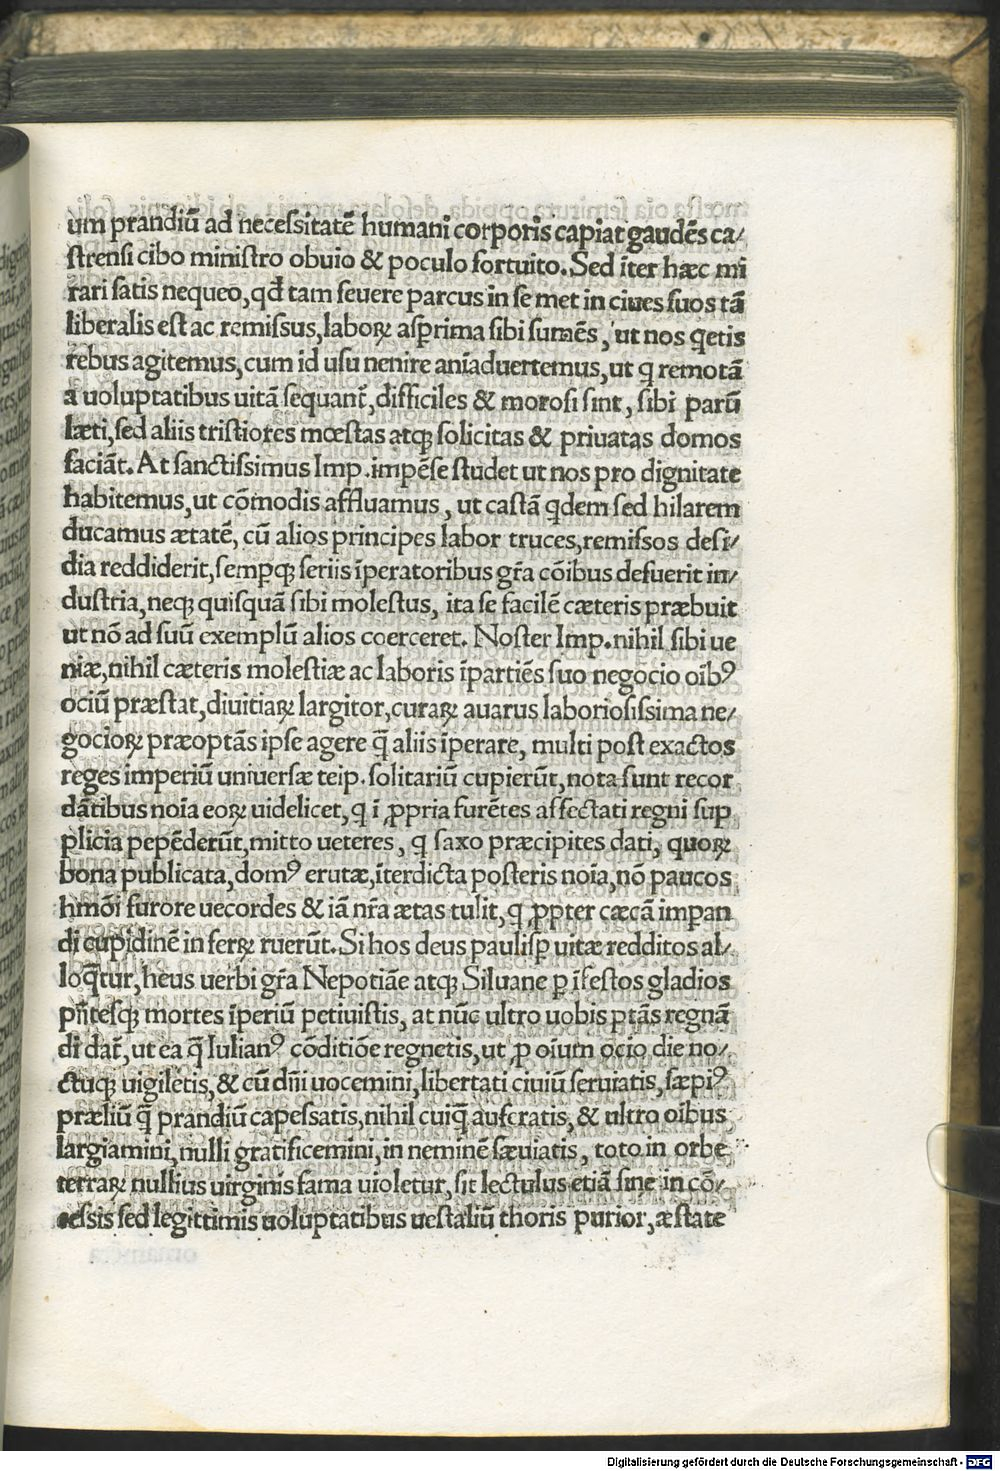 um prandiū ad necessitatē humani corporis capiat gaudēs ca/
strensi cibo ministro obuio & poculo fortuito. Sed īter hæc mi
rari satis nequeo, qđ tam seuere parcus in se met in ciues suos tā
liberalis est ac remissus, laboꝝ asꝑrima sibi sumēs, ut nos qetis
rebus agitemus, cum id usu uenire aniāduertemus, ut q remotā
a uoluptatibus uitā sequant̄, difficiles & morosi sint, sibi parū
læti, sed aliis tristiores mœstas atqꝫ solicitas & priuatas domos
faciāt. At sanctissimus Imp. impēse studet ut nos pro dignitate
habitemus, ut cōmodis affluamus, ut castā qdem sed hilarem
ducamus ætatē, cū alios principes labor truces, remissos desi/
dia reddiderit, sempqꝫ seriis īperatoribus gr̄a cōibus defuerit in/
dustria, neqꝫ quisquā sibi molestus, ita se facilē cæteris præbuit
ut nō ad suū exemplū alios coerceret. Noster Imp. nihil sibi ue
niæ, nihil cæteris molestiæ ac laboris īpartiēs suo negocio oībꝰ
ociū præstat, diuitiaꝝ largitor, curaꝝ auarus laboriosissima ne/
gocioꝝ præoptās ipse agere q̄ aliis īperare, multi post exactos
reges imperiū uniuersæ reip. solitariū cupierūt, nota sunt recor
dātibus noīa eoꝝ uidelicet, q ī ꝓpria furētes affectati regni sup
plicia pepēderūt, mitto ueteres, q saxo præcipites dati, quoꝝ
bona publicata, domꝰ erutæ, īterdicta posteris noīa, nō paucos
hmōi furore uecordes & iā nr̄a ætas tulit, q ꝓpter cæcā impan
di cupidinē in ferꝝ ruerūt. Si hos deus paulisꝑ uitæ redditos al/
loq̄tur, heus uerbi gr̄a Nepotiāe atqꝫ Siluane ꝑ īfestos gladios
pn̄tesqꝫ mortes īperiū petiuistis, at nūc ultro uobis ptās regnā
di dat̄, ut ea q̄ Iulianꝰ cōditiōe regnetis, ut ꝓ oīum ocio die no/
ctuqꝫ uigiletis, & cū dn̄i uocemini, libertati ciuiū seruiatis, sæpiꝰ
præliū q̄ prandiū capessatis, nihil cuiq̄ auferatis, & ultro oībus
largiamini, nulli gratificemini, in neminē sæuiatis, toto in orbe
terraꝝ nullius uirginis fama uioletur, sit lectulus etiā sine in cō/
cessis sed legittimis uoluptatibus uestaliū thoris purior, æstate
Digitalisierung gefördert durch die Deutsche Forschungsgemeinschaft - DFG